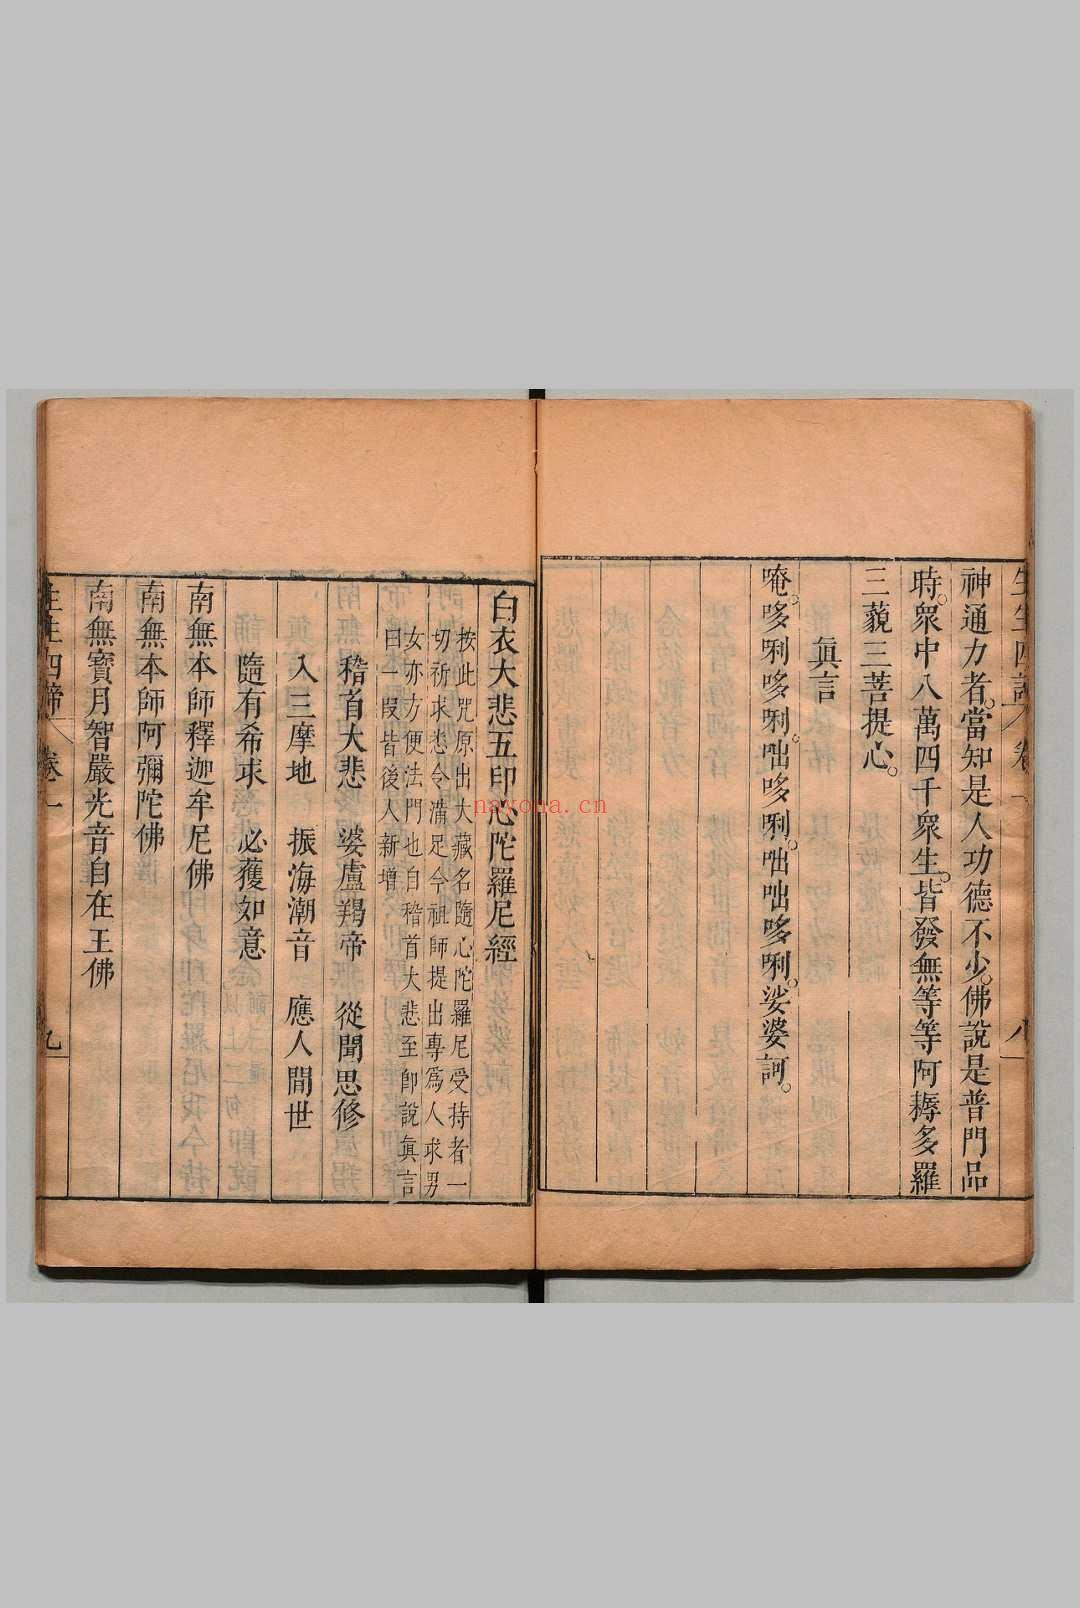 神通力者。當知是人功德不少。佛說是普門品
時。衆中八萬四千衆生。皆發無等等阿耨多羅
三藐三菩提心。
眞言
唵。哆唎哆唎。咄哆唎。咄咄哆唎。娑婆訶。
白衣大悲五印心陀羅尼經
按此咒原出大藏名隨心陀羅尼受持者一
切祈求悉令滿足今祖師提出專爲人求男
女亦方便法門也自稽首大悲至卽說眞言
曰一段皆後人新增
稽首大悲　婆盧羯帝　從聞思修
入三摩地　振海潮音　應人間世
隨有希求　必獲如意
南無本師釋迦牟尼佛
南無本師阿彌陀佛
南無寶月智嚴光音自在王佛
生生四諦
卷一
九
nayona.cn